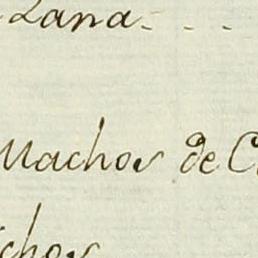 Lana - - -
Machos de C
chos